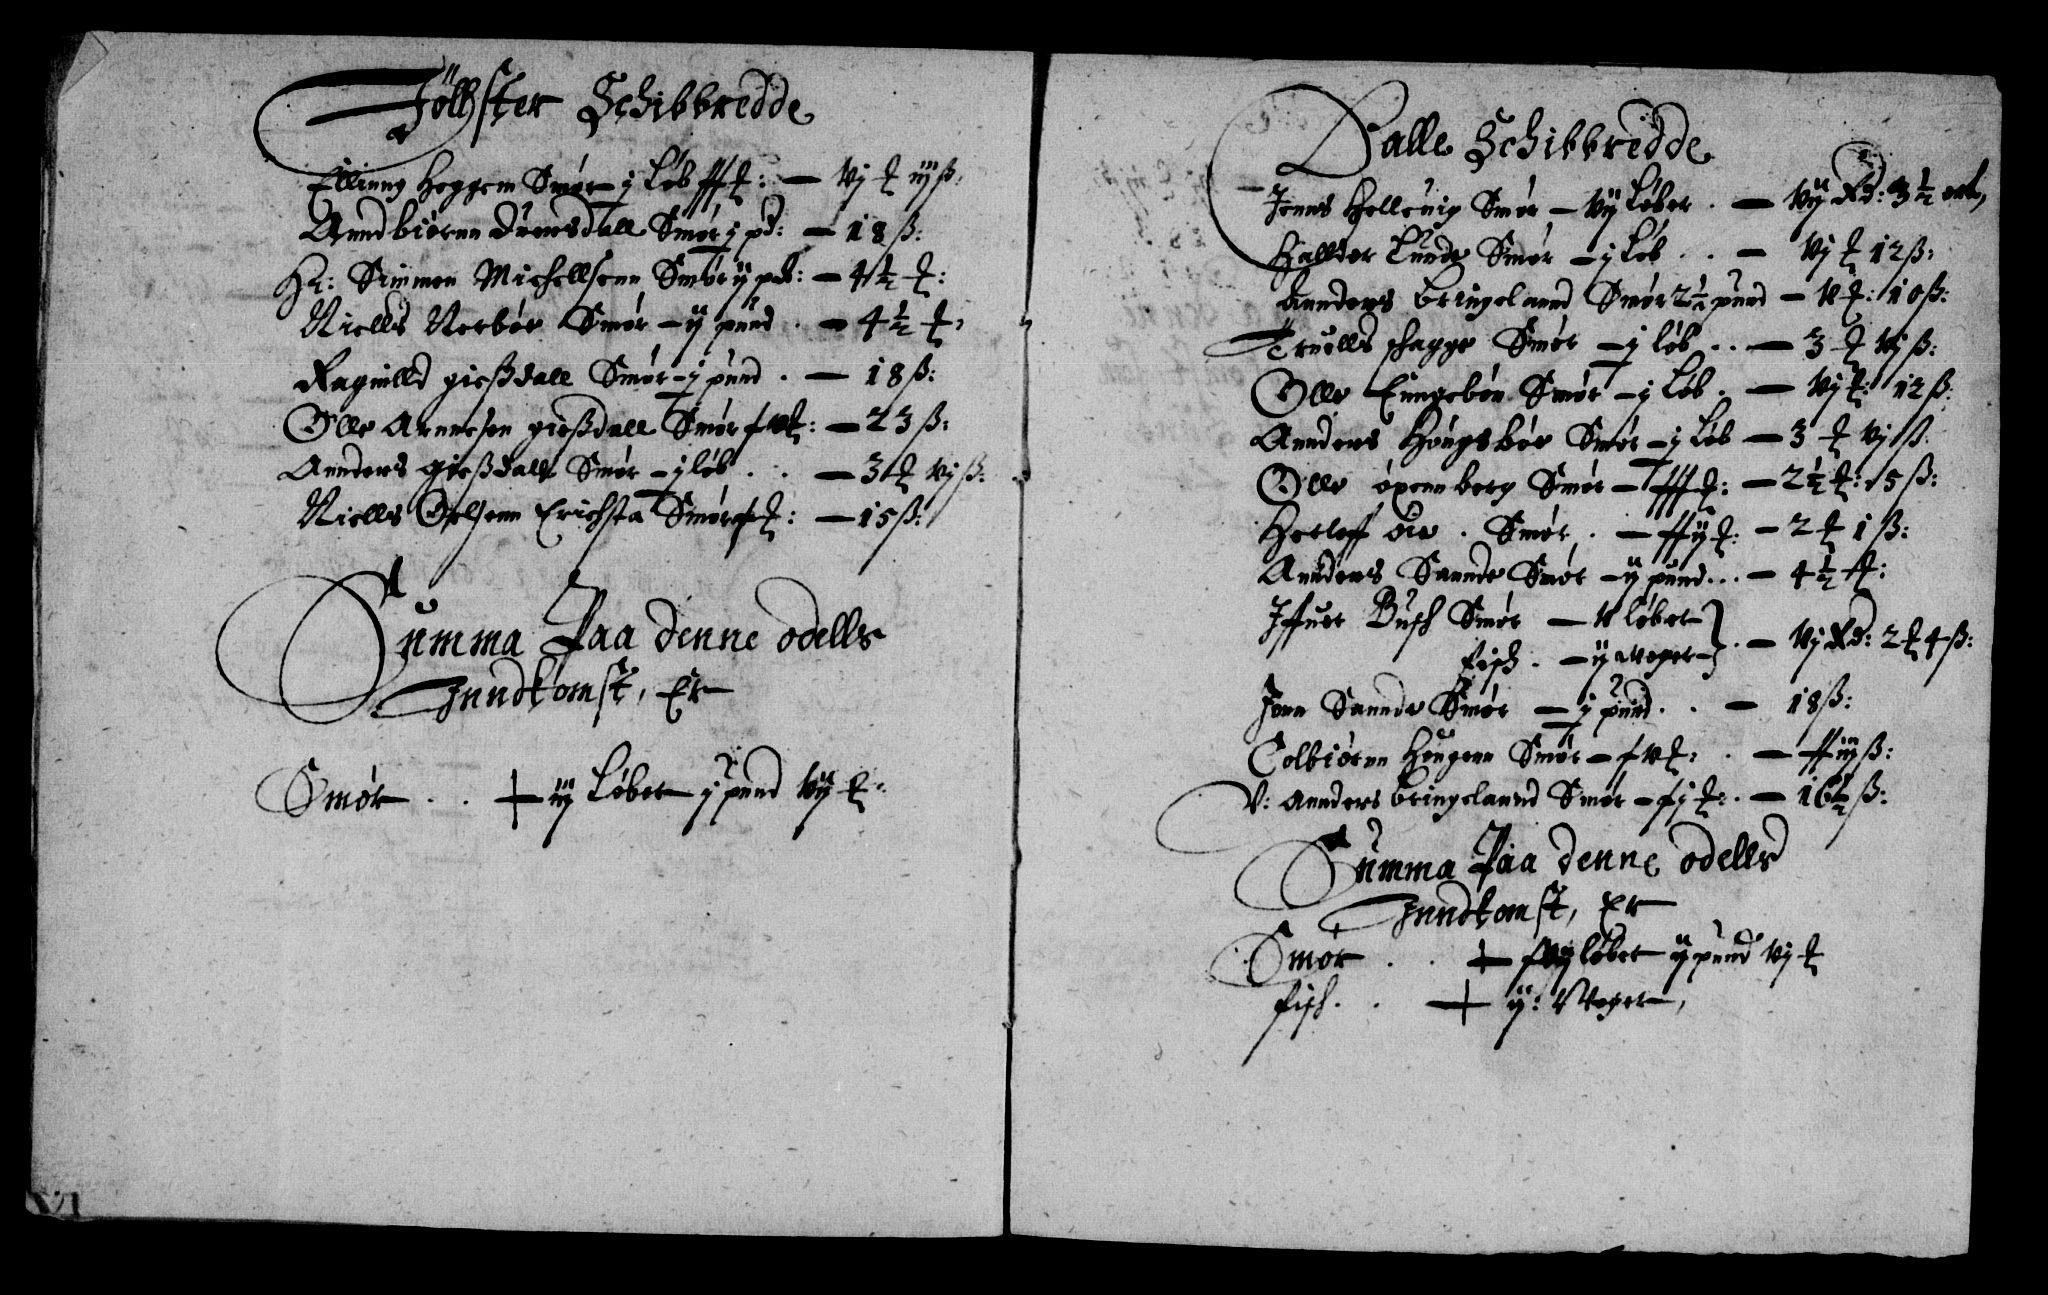 Jölhster Schibbredde
Ellinng Heggem Smør - j Løb - vj ₰ iijß:
Anndbiörnn Smør j pd: - 18 ß:
Hr: Simmen Michellsenn Smør ij pd: - 4½
Niells Nerbøe Smør - ij pund - 4½
Ragnilld gießdall Smør - j pund - 18 ß:
Olle Arnnesen gießdall Smør - 23 ß:
Annders gießdall Smør - j løb - 3 vjß:
Niells Ollsenn Erichsta Smør - 15 ß:
Summa Paa denne odells
Inndkomst, Er
Smør iij Løber j pund vij
Dalle Schibbredde
Jenns Hellenig Smør - vij Løber - vij Rd: 3½ ort,
Halldor Lunde Smør - j Løb - vj 12 ß:
Annders bringelannd Smør 2½ pund - v : 10 ß:
Truells schagge Smør - j løb - 3 vj ß:
Olle Enngebøe Smør - j Løb - vj : 12 ß:
Annders Hougsbøe Smør - j Løb - 3 vj ß
Olle öxennberg Smør - 2½ : 5 ß:
Herleff öie Smør - 2 1 ß:
Annders Sannde Smør - ij pund - 4½
Iffuer Busch Smør - v løber
fisch - ij woger - vj Rd: 2 4 ß:
Jonn Sannde Smør - j pund - 18 ß:
Tolbiörnn Hougenn Smør
V: Annders bringelannd Smør - 16½ ß:
Summa Paa denne odells
Inndkomst, Er
Smør løber ij pund vj
fisch ij: Woger,